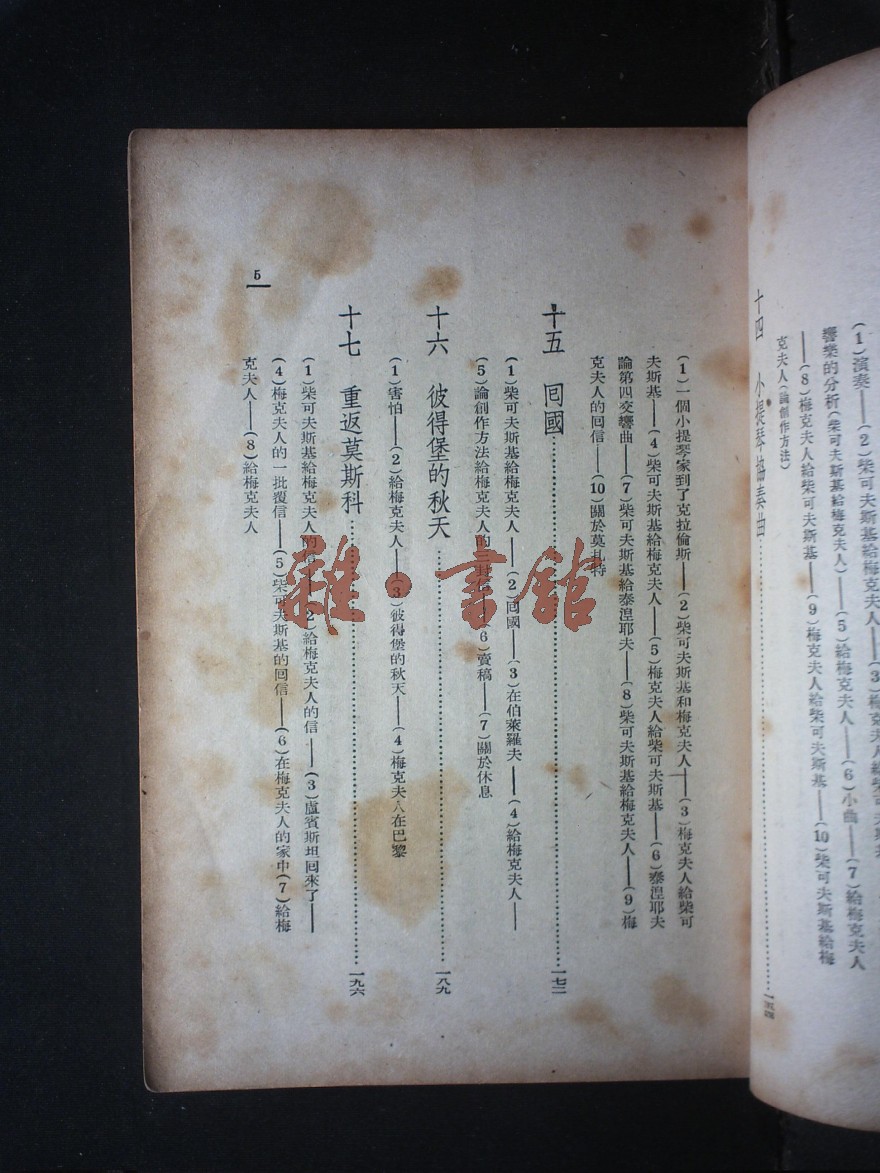 (1)演奏——(2)柴可夫斯基給梅克夫人——(3)梅克夫人給柴可夫斯基
響樂的分析(柴可夫斯基給梅克夫人)——(5)給梅克夫人——(6)小曲——(7)給梅克夫人
——(8)梅克夫人給柴可夫斯基——(9)梅克夫人給柴可夫斯基——(10)柴可夫斯基給梅
克夫人(論創作方法)
十四 小提琴協奏曲……一五四
(1)一個小提琴家到了克拉倫斯——(2)柴可夫斯基和梅克夫人——(3)梅克夫人給柴可
夫斯基——(4)柴可夫斯基給梅克夫人——(5)梅克夫人給柴可夫斯基——(6)泰湼耶夫
論第四交響曲——(7)柴可夫斯基給泰湼耶夫——(8)柴可夫斯基給梅克夫人——(9)梅
克夫人的回信——(10)關於莫扎特
十五 囘國……一七二
(1)柴可夫斯基給梅克夫人——(2)囘國——(3)在伯萊羅夫——(4)給梅克夫人——
(5)論創作方法給梅克夫人的三封信——(6)賣稿——(7)關於休息
十六 彼得堡的秋天……一八九
(1)害怕——(2)給梅克夫人——(3)彼得堡的秋天——(4)梅克夫人在巴黎
十七 重返莫斯科……一九六
(1)柴可夫斯基給梅克夫人的信——(2)給梅克夫人的信——(3)盧賓斯坦回來了——
(4)梅克夫人的一批覆信——(5)柴可夫斯基的囘信——(6)在梅克夫人的家中(7)給梅
克夫人——(8)給梅克夫人
5
雜·書館